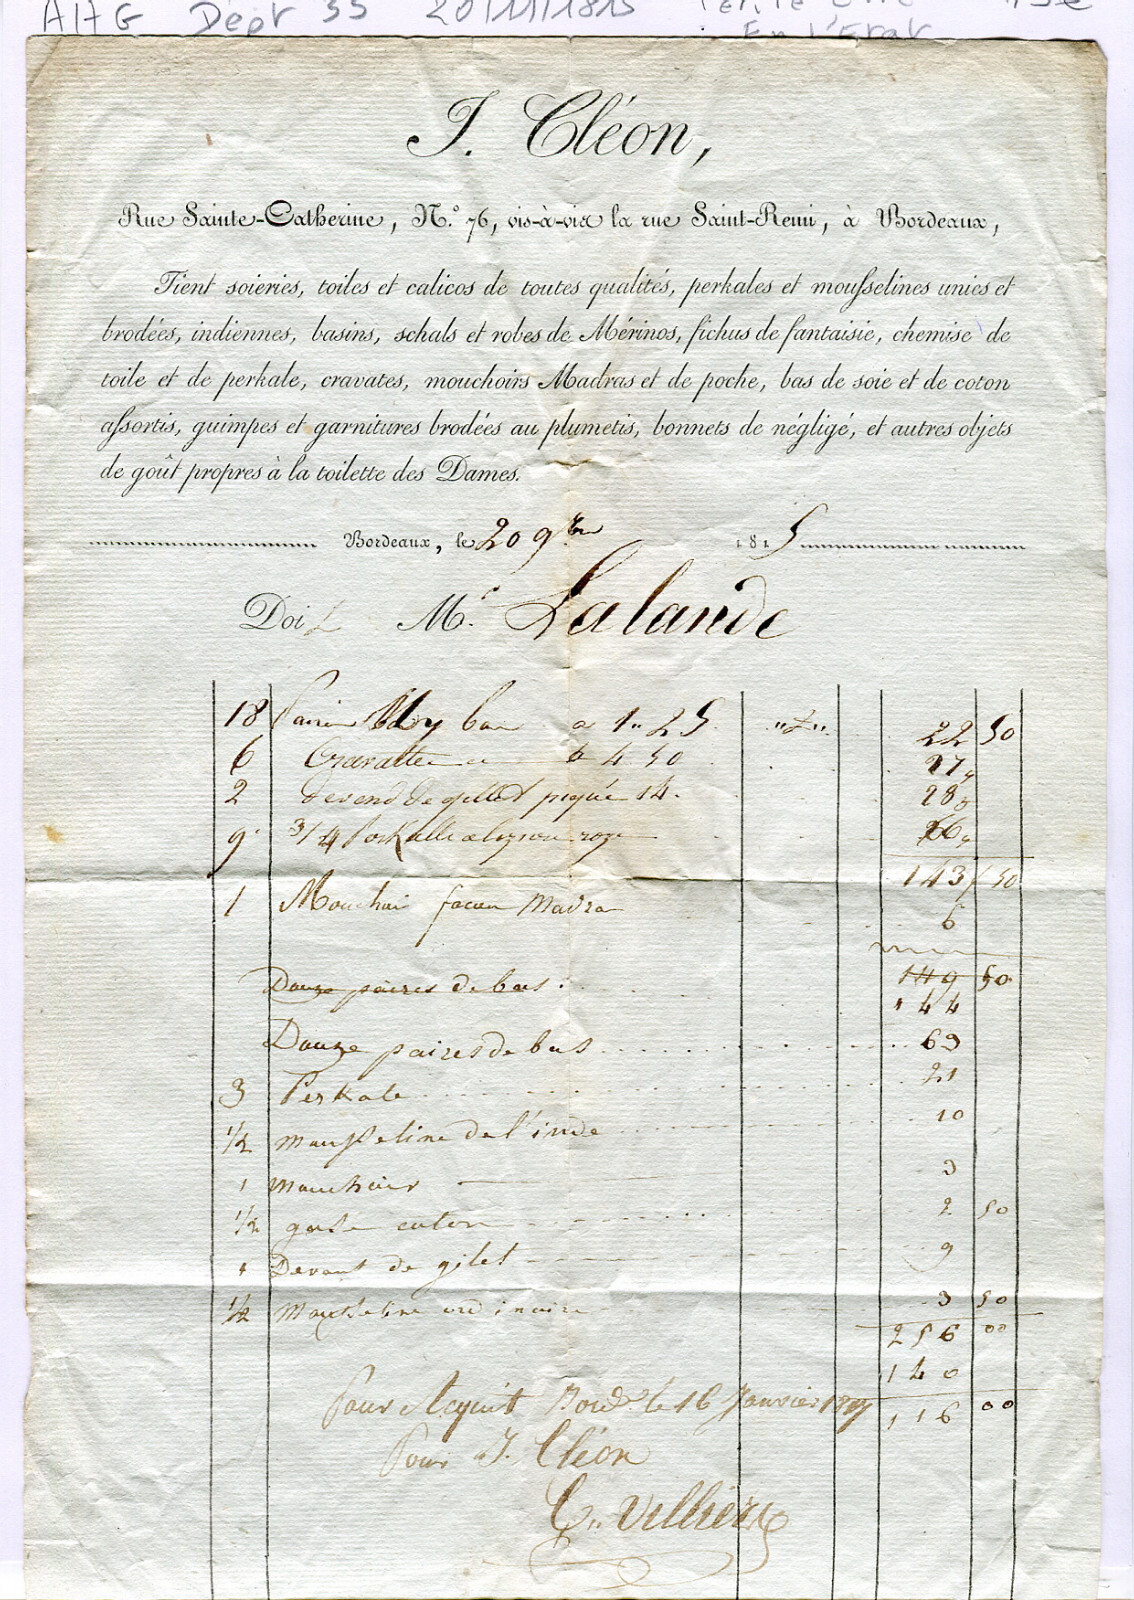 AHG Dépt 33 20/11/1815
En l'Etat
J. Cléon,
Rue Sainte-Catherine, N.° 76, vis-à-vis la rue Saint-Remi, à Bordeaux,
Tient soieries, toiles et calicos de toutes qualités, perkales et mousselines unies et
brodées, indiennes, basins, schals et robes de Mérinos, fichus de fantaisie, chemise de
toile et de perkale, cravates, mouchoirs Madras et de poche, bas de soie et de coton
assortis, guimpes et garnitures brodées au plumetis, bonnets de négligé, et autres objets
de goût propres à la toilette des Dames.
Bordeaux, le 20 9bre 1815
Doit Mr. Lalande
18 Paires bas a 1" 25 22 50
6 Cravattes a 4 50 27
2 devend de gillet piquée 14. 28
9 3/4 Perkalle 66
143 50
1 Mouchoir facon Madra 6
149 50
Douze paires de bas : 144
Douze paires de bas 69
3 Perkale 21
1/2 mousseline de l'inde 10
1 mouchoir 3
1/2 gase coton 2 50
1 Devant de gilet 9
1/2 mousseline ordinaire 3 50
256 00
140
116 00
Pour Acquit Bordx le 16 Janvier
Pour J. Cléon
C. Villiers